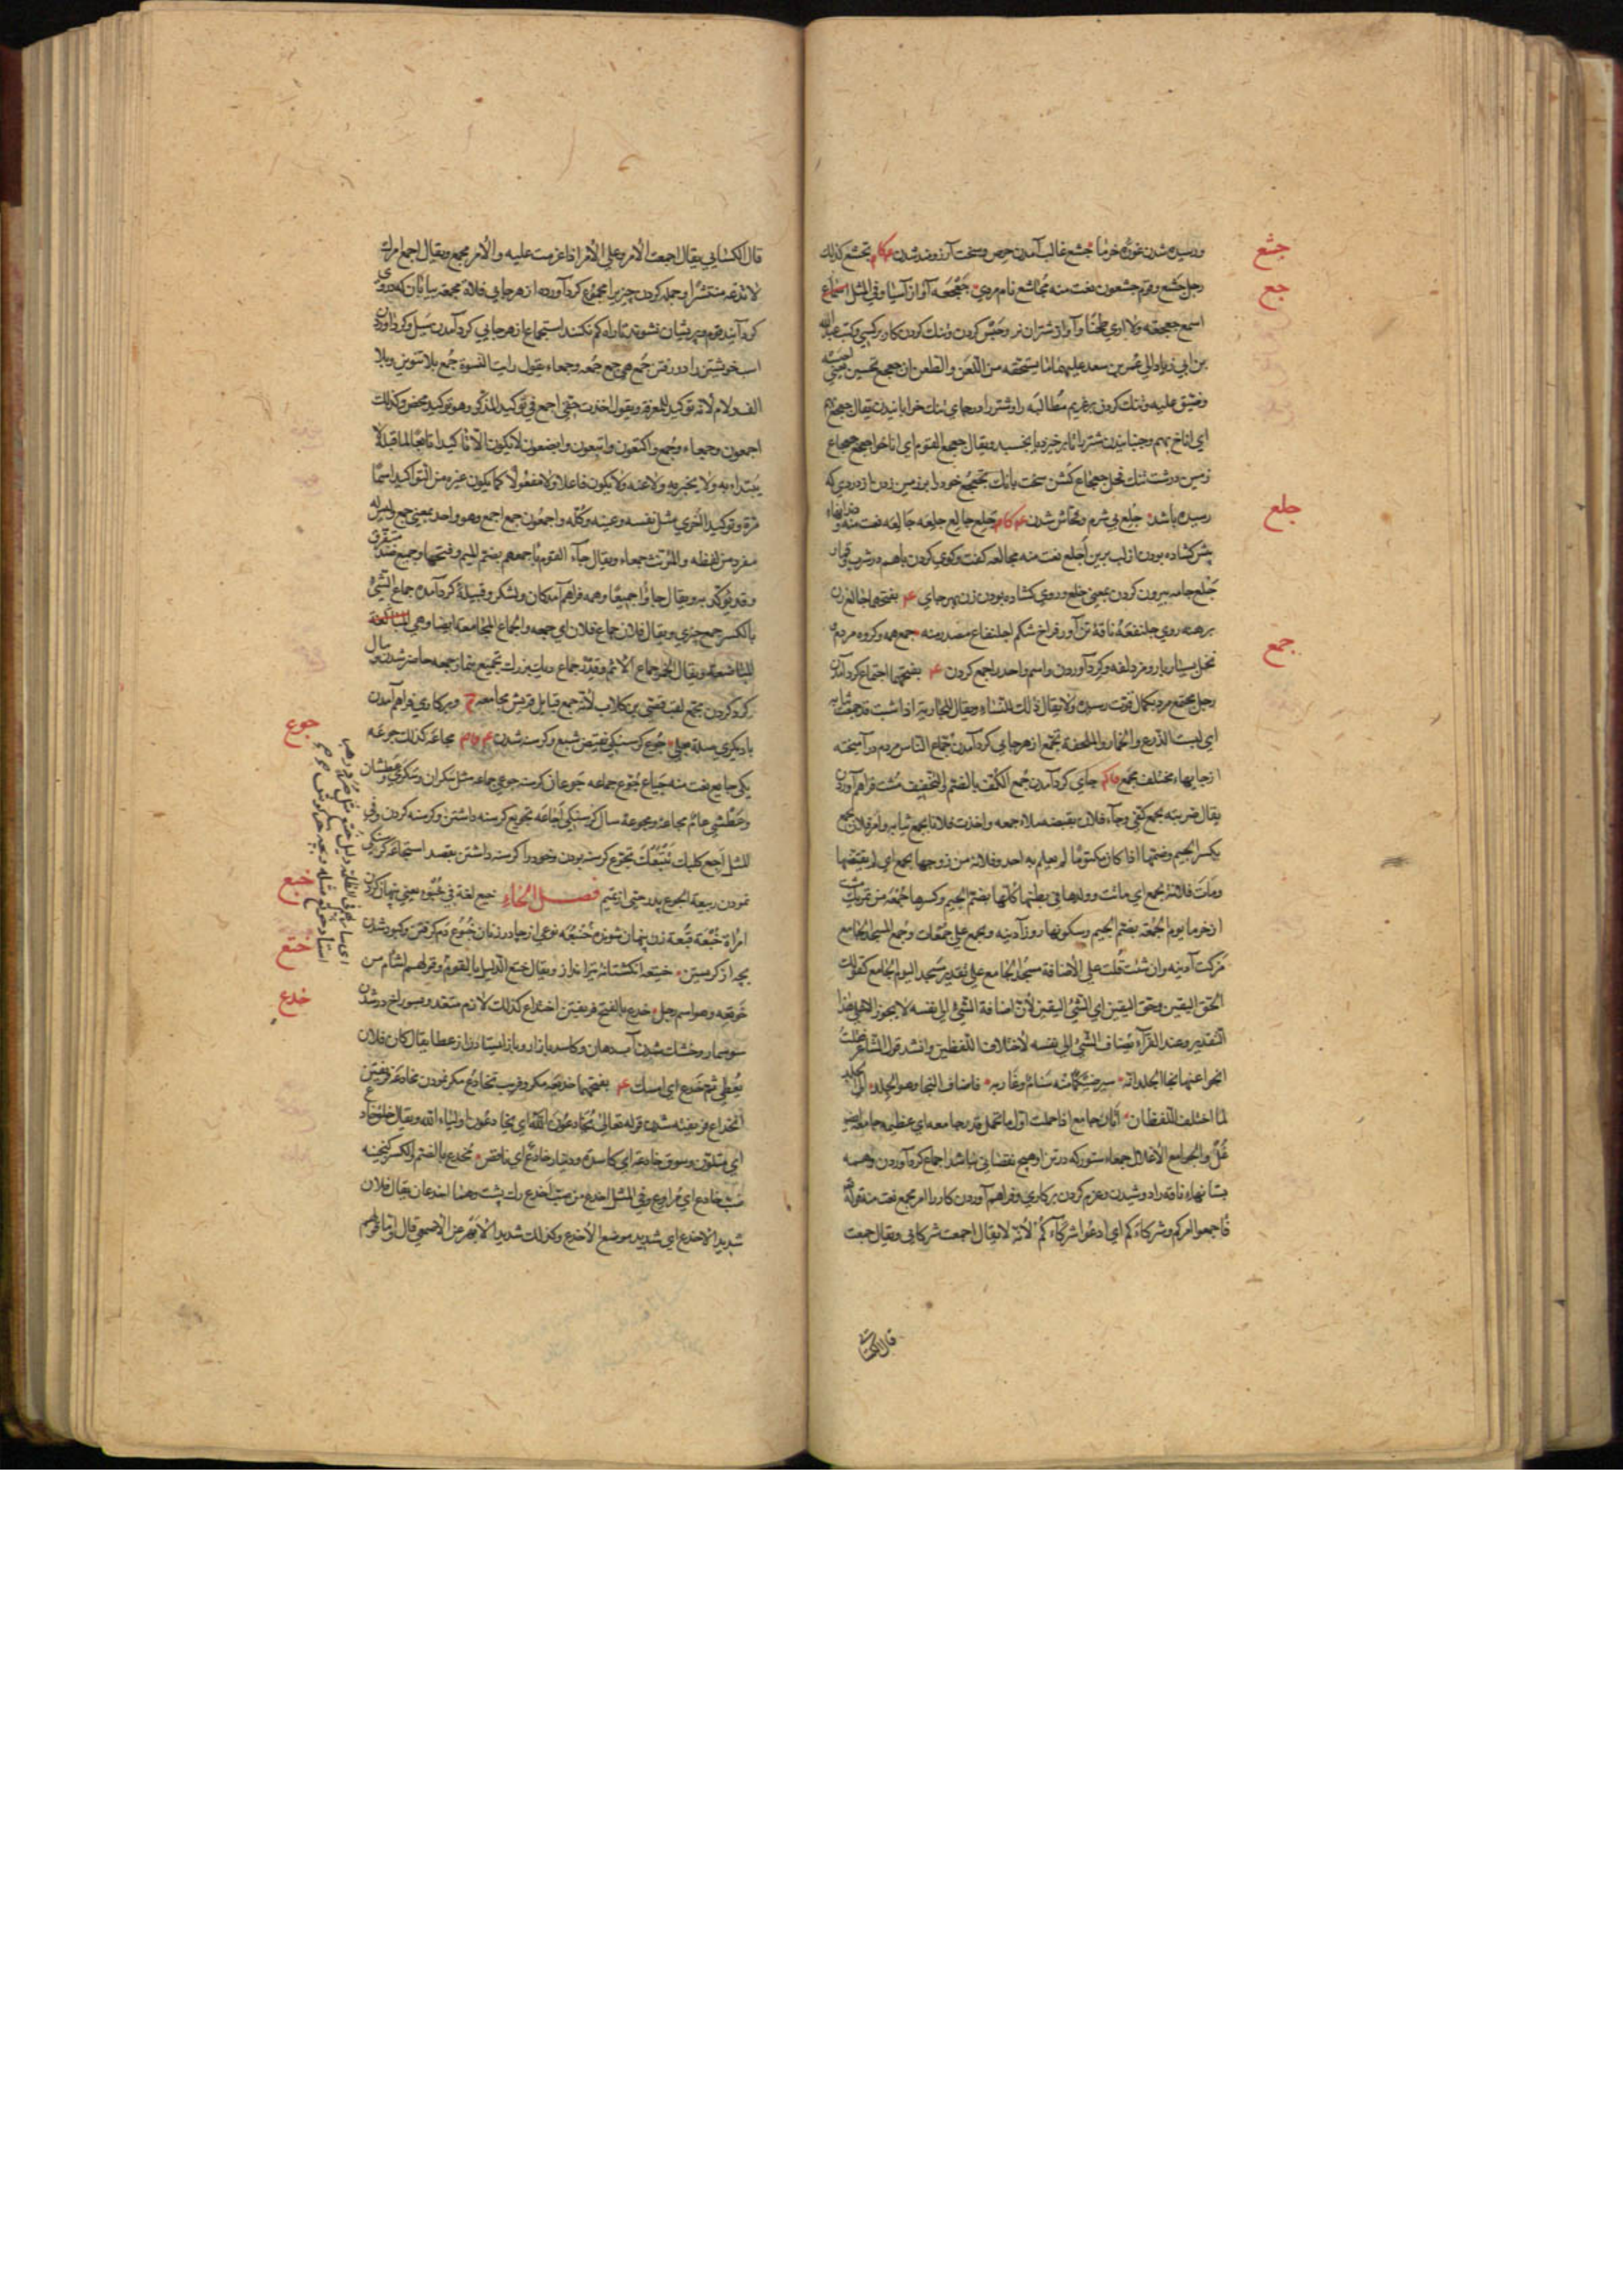 جشع
ورسیده شدن غوره خرما جشع غالب آمدن حرص وسخت آرزومند شدن تجشع کذلك
جع
رجل جشع وقوم جشعون نعت منه مجاشع نام مردی جعجعه آواز آسیا وفی المثل
اسمع جعجعة ولا اری طحنا وآواز شتران وحبس کردن وتنك کردن کار بر کسی وکتب عبید الله
بن ابی زیاد الی عمر بن سعد علیهما ما یستحقه من اللعن والطعن ان جعجع بحسین
وضیق علیه وتنك کردن بر غریم مطالبه را وشتر را در جای تنك خوابانیدن یقال جعجع بهم
ای اناخ بهم وجنبانیدن شتر تا برخیزد یا بخسبد ویقال جعجع القوم ای اناخوا جعجع جعجاع
زمین درشت تنك فحل جعجاع کشن سخت بانك تجعجع خود را بر زمین زدن از دردی که
جلع
رسیده باشد جلع بی شرم وفحاش شدن جلع جالع جلعه جالعه نعت منه
کشاده بودن از لب برین اجلع نعت منه مجالعه کفت وکوی کردن باهم در شرب وقمار
جلع جامه بیرون کردن بمعنی خلع وروی کشاده بودن زن بهر جای بفتحهما جالعه زن
جمع
برهنه روی جلنفعه ناقۀ تن آور فراخ شکم اجلنفاع مصدر منه جمع همه وکروه مردم
نخل بسیار بار ومزدلفه وکرد آوردن واسم واحد را جمع کردن بفتحهما اجتماع کرد آمدن
رجل مجتمع مرد بکمال قوت رسیده ولا یقال ذلك للنساء ویقال للجاریة اذا شبت قد جمعت ثیابها
ای لبست الدرع والخمار والملحفة تجمع از هر جایی کرد آمدن جماع الناس مردم در آمیخته
از جایهاء مختلف مجمع جای کرد آمدن جمع الکف بالضم والتخفیف مشت فراهم آورده
یقال ضربته بجمع کفی وجاء فلان بقبضة ملاء جمعه واخذت فلانا بجمع ثیابه وامر فلان بجمع
بکسر الجیم وضمها اذا کان مکتوما لم یعلم به احد وفلانة من زوجها بجمع ای لم یقتضها
وماتت فلانة بجمع ای ماتت وولدها فی بطنها کلها بضم الجیم وکسرها جمعة من تمر
از خرما یوم الجمعة بضم الجیم وسکونها روز آدینه ویجمع علی جمعات وجمع المسجد الجامع
مزکت آدینه وان شئت قلت علی الاضافة مسجد الجامع علی تقدیر مسجد الیوم الجامع کقولك
الحق الیقین وحق الیقین ای الشیء الیقین لان اضافة الشیء الی نفسه لا یجوز الا علی هذا
التقدیر وعند الفراء یضاف الشیء الی نفسه لاختلاف اللفظین وانشد قول الشاعر فقلت
انجوا عنها نجا الجلد انه سیرضیکما منها سنام وغاربه فاضاف النجا وهو الجلد الی الجلد
لما اختلف اللفظان اتان جامع اذا حملت اول ما تحمل قدر جامعه ای عظیمه
غل والجوامع الاغلال جمعاء ستور که در تن او هیچ نقصانی نباشد اجماع کرد آوردن وهمه
بستانهاء ناقه را دوشیدن وعزم کردن بر کاری وفراهم آوردن کار را امر مجمع نعت منه قوله
فاجمعوا امرکم وشرکاءکم ای ادعوا شرکاءکم لانه لا یقال اجمعت شرکائی ویقال جمعت
قال الکسائی
قال الکسایی یقال اجمعت الامر وعلی الامر اذا عزمت علیه والامر مجمع ویقال اجمع امرك
لا تدعه منتشرا وجمله کردن چیز را مجموع کرد آورده از هر جایی فلاة مجمعة بیابان که دروی
کرد آیند قوم وپریشان نشوند تا راه کم نکنند استجماع از هر جایی کرد آمدن سیل وکرد آوردن
اسب خویشتن را در رفتن جمع هی جمع جمعه وجمعاء یقول رایت النسوة جمع بلا تنوین وبلا
الف ولام لانه توکید للمعرفة ویقول اخذت حقی اجمع فی توکید المذکر وهو توکید محض وکذلك
اجمعون وجمعاء وجمع واکتعون وابتعون وابصعون لا یکون الا تاکیدا تابعا لما قبله لا
یبتدا به ولا یخبر به ولا عنه ولا یکون فاعلا ولا مفعولا کما یکون غیره من التواکید اسما
مرة وتوکیدا اخری مثل نفسه وعینه وکله واجمعون جمع اجمع وهو واحد بمعنی جمع ولیس له
مفرد من لفظه والمؤنث جمعاء ویقال جاء القوم باجمعهم بضم المیم وفتحها وجمیع ضد متفرق
وقد یؤکد به ویقال جاؤا جمیعا وهمه فراهم آمدکان ولشکر وقبیلۀ کرد آمده جماع الشیء
بالکسر جمع چیزی ویقال فلان جماع فلان ای جمعه والجماع المجامعة ایضا وهی المباضعة
ویقال الخمر جماع الاثم وقدر جماع دیك بزرك تجمیع بنماز جمعه حاضر شدن ومال
کرد کردن مجمع لقب قصی بن کلاب لانه جمع قبایل قریش مجامعه وبر کاری فراهم آمدن
جوع
با دیکری جوع کرسنکی نقیض شبع وکرسنه شدن مجاعه کذلك جوعه
یکی جایع نعت منه جیاع جوع جماعه جوعان کرسنه جوعی جماعه مثل سکران وسکری وعطشان
وعطشی عام مجاعة ومجوعة سال کرسنکی اجاعه تجویع کرسنه داشتن وکرسنه کردن وفی
المثل اجع کلبك یتبعك تجوع کرسنه بودن وخود را کرسنه داشتن بقصد استجاعه کرسنکی
خبع
نمودن ربیعة الجوع پدر حیی از تمیم فصل الخاء خبع لغة فی خبء یعنی پنهان کردن
امراة خبعة قبعة زن پنهان شونده خنبعه نوعی از جادر زنان خبوع دم کرفتن وکبود شدن
ختع
بچه از کریستن ختیعه انکشتانۀ تیر انداز ویقال ختع الدلیل بالقوم وقولهم اشأم من
خدع
خوتعه وهو اسم رجل خدع بالفتح فریفتن اختداع کذلك لازم متعد وبسوراخ در شدن
سوسمار وخشك شدن آب دهان وکاسد بازار وباز ایستادن از عطا یقال کان فلان
یعطی ثم خدع ای امسك بفتحهما خدیعه مکر وفریب تخادع مکر نمودن مخادعه فریفتن
انخداع فریفته شدن قوله تعالی یخادعون الله ای یخادعون اولیاء الله ویقال خلق خادع
ای متلون وسوق خادعة ای کاسدة ودینار خادع ای ناقص مخدع بالضم والکسر کنجینه
ضب خادع ای مراوغ وفی المثل اخدع من ضب اخدع رك پشت وهما اخدعان یقال فلان
شدید الاخدع ای شدید موضع الاخدع وکذلك شدید الابهر عن الاصمعی قال واما قولهم